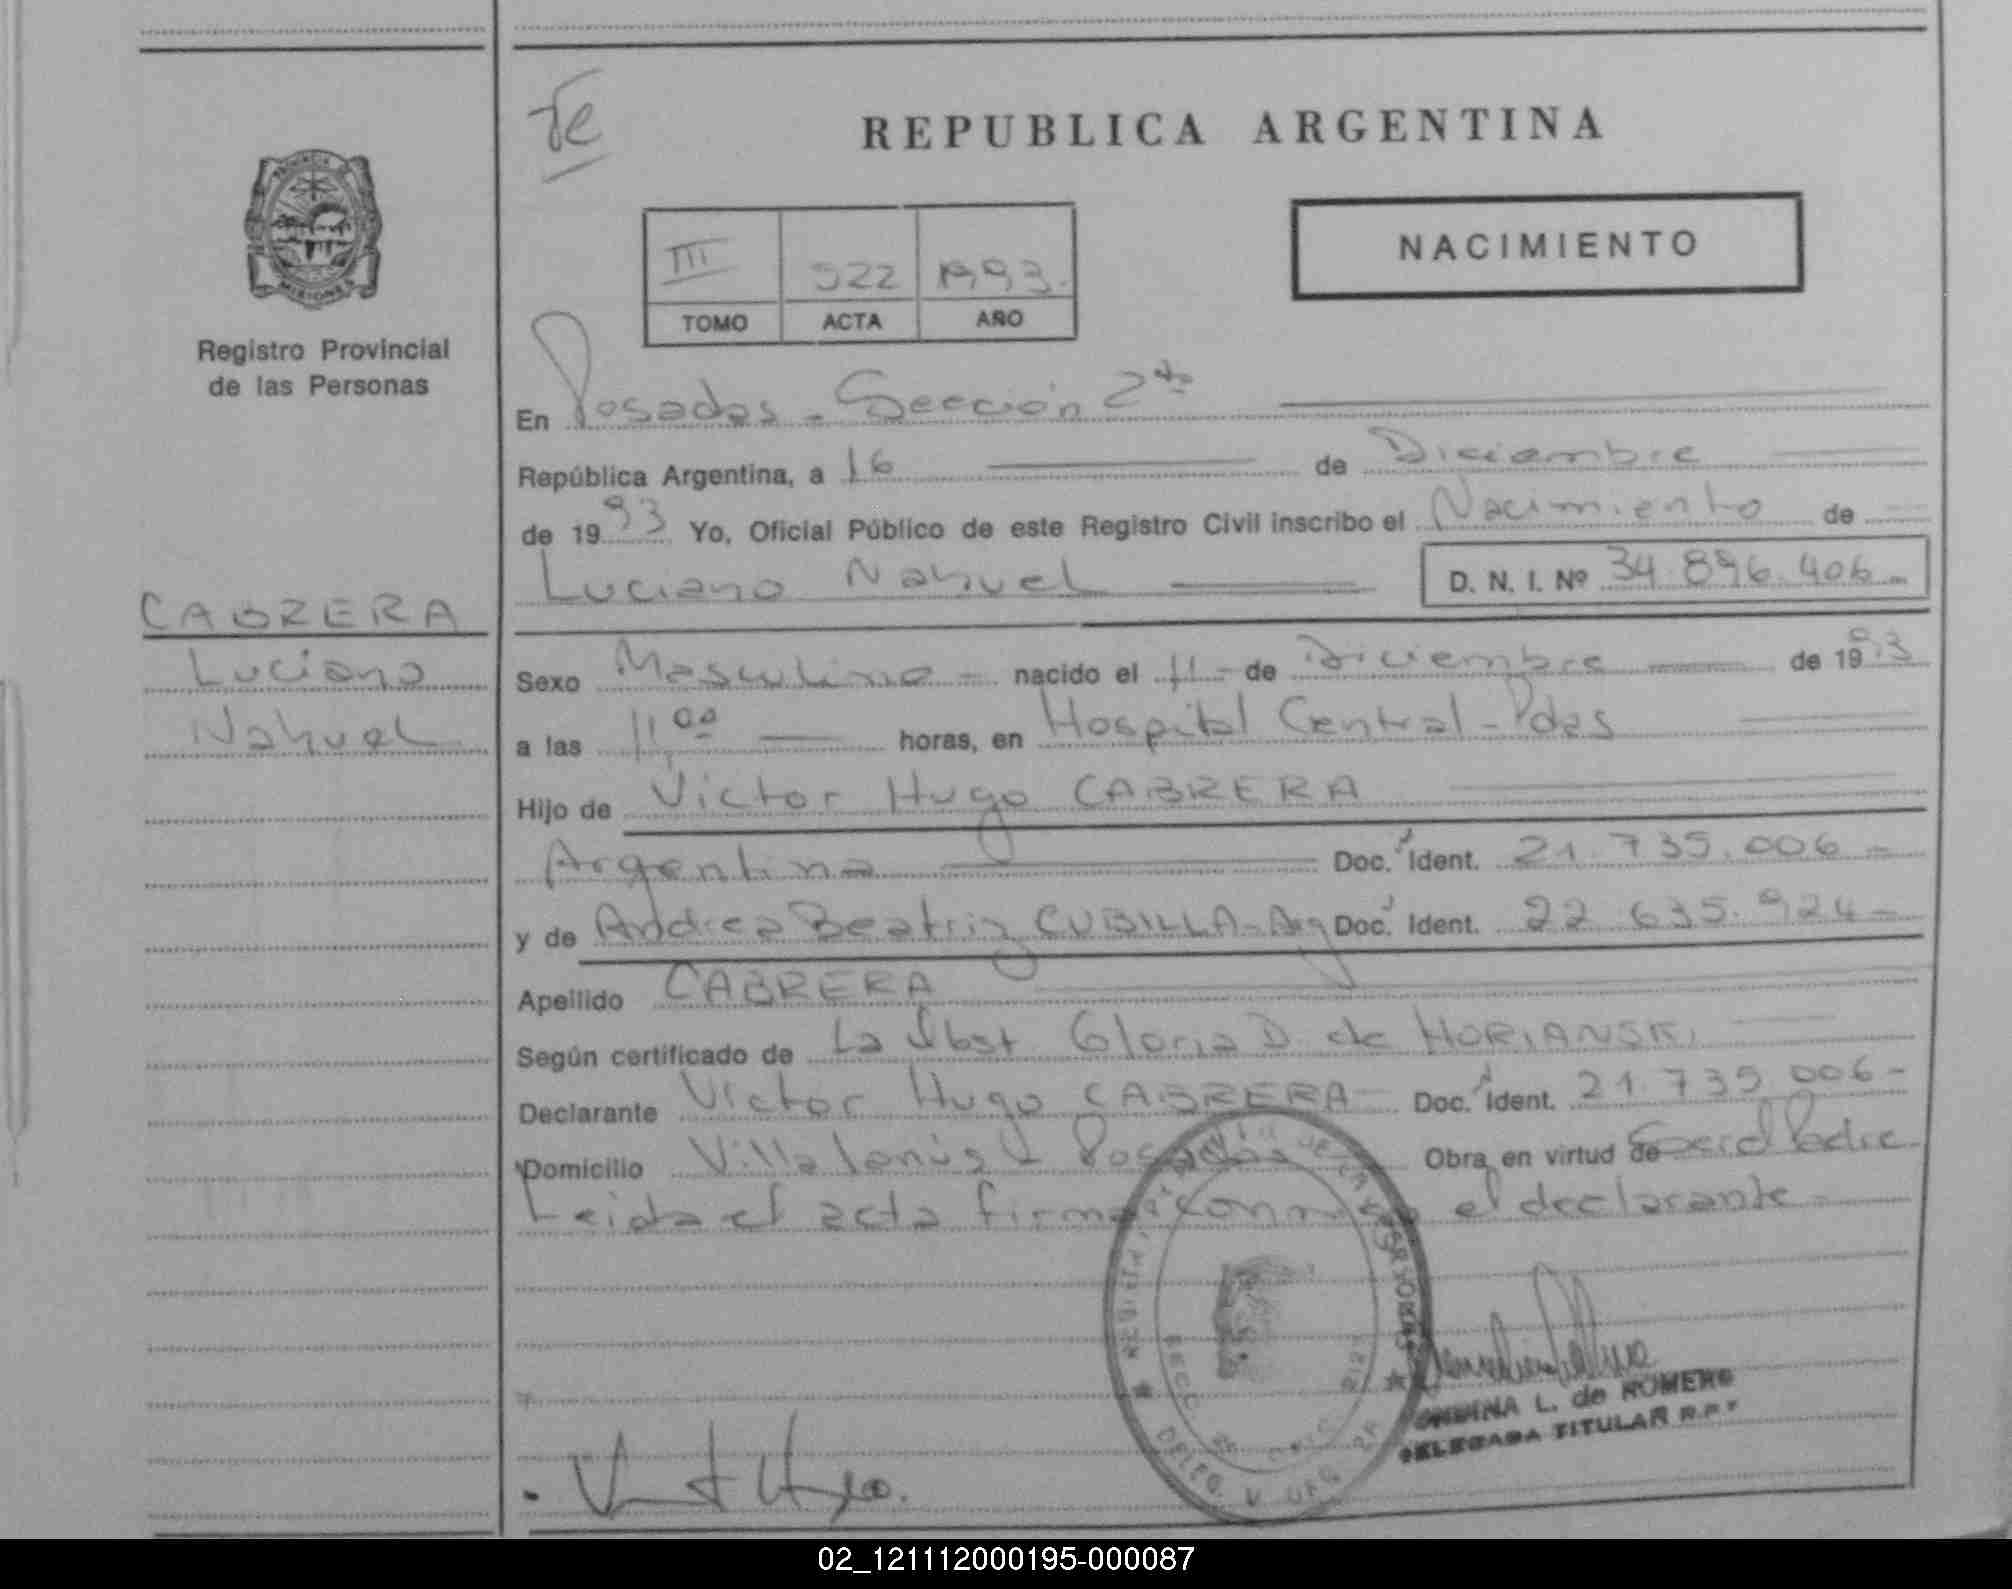 REPUBLICA ARGENTINA
PROVINCIA
MISIONES
Registro Provincial
de las Personas
NACIMIENTO
III 922 1993.
TOMO ACTA AÑO
En Posadas - Sección 2da
República Argentina, a 16 de Diciembre
de 1993 Yo, Oficial Público de este Registro Civil inscribo el Nacimiento de
Luciano Nahuel D. N. I. Nº 34.896.406-
CABRERA
Luciano
Nahuel
Sexo Masculino - nacido el 11 - de Diciembre de 1993
a las 11,00 horas, en Hospital Central - Pdas
Hijo de Victor Hugo CABRERA
Argentina Doc. Ident. 21.735.006-
y de Andrea Beatriz CUBILLA - Arg Doc. Ident. 22.635.924-
Apellido CABRERA
Según certificado de La Obst Gloria D. de HORIANSKI
Declarante Victor Hugo CABRERA - Doc. Ident. 21.735.006-
Domicilio Villa Lanús - Posadas Obra en virtud de Padre
Leida el acta firma conmigo el declarante -
DELEG.
L. de ROMERO
DELEGADA TITULAR R.P.P
02_121112000195-000087